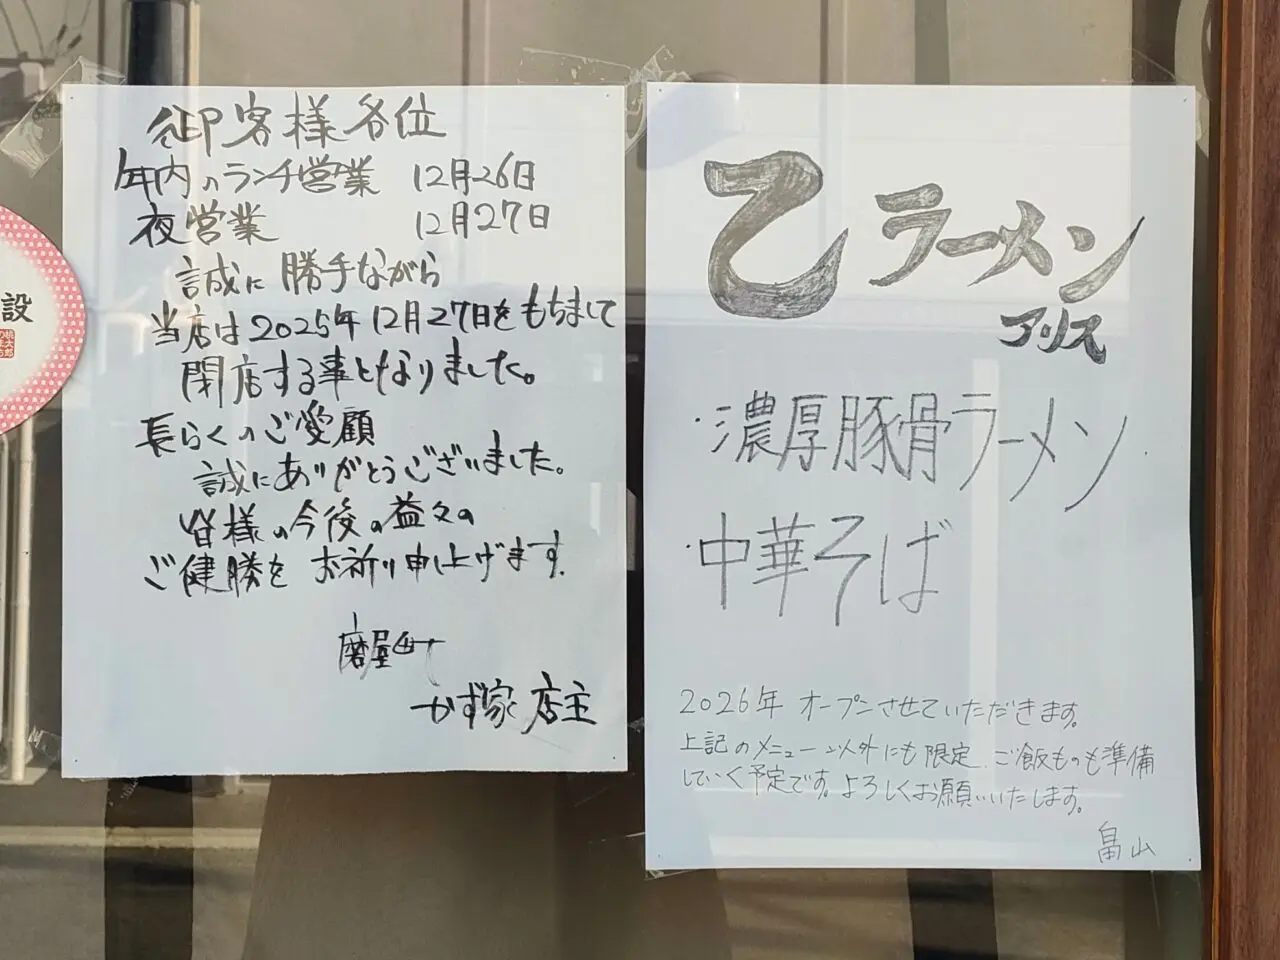 御客様各位
年内のランチ営業 12月26日
夜営業 12月27日
誠に勝手ながら
当店は2025年12月27日をもちまして
閉店する事となりました。
長らくのご愛顧
誠にありがとうございました。
皆様の今後の益々の
ご健勝をお祈り申し上げます。
磨屋町
かず家 店主
設
乙ラーメン
アリス
・濃厚豚骨ラーメン
・中華そば
2026年 オープンさせていただきます。
上記のメニュー以外にも限定、ご飯ものも準備
していく予定です。よろしくお願いいたします。
畠山